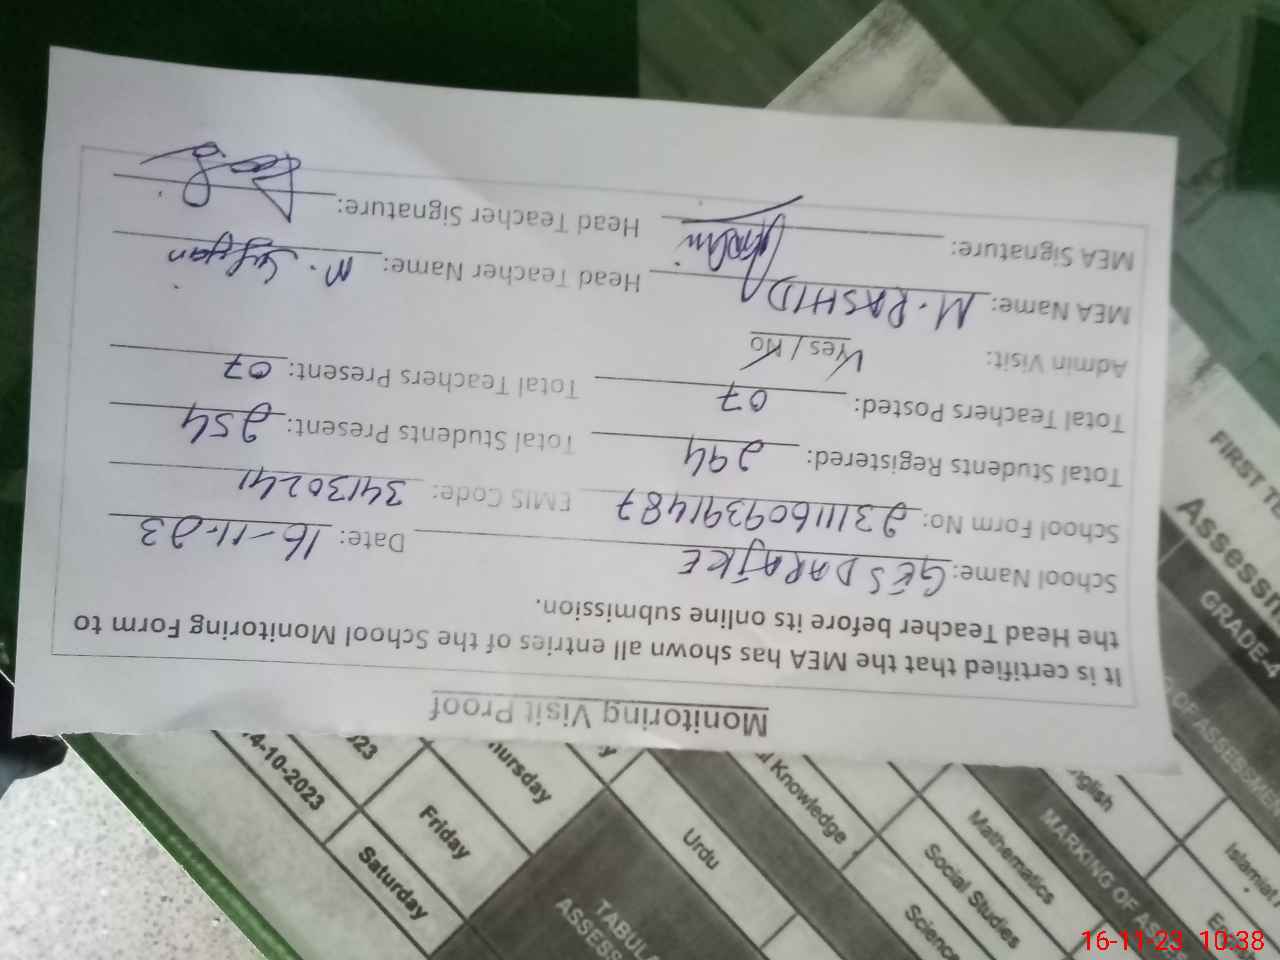 Monitoring Visit Proof
It is certified that the MEA has shown all entries of the School Monitoring Form to
the Head Teacher before its online submission.
School Name: GES DARAJKE Date: 16-11-23
School Form No: 23111609391487 EMIS Code: 34130241
Total Students Registered: 294 Total Students Present: 254
Total Teachers Posted: 07 Total Teachers Present: 07
Admin Visit: Yes / No
MEA Name: M. RASHID Head Teacher Name: M. Sufyan
MEA Signature: Head Teacher Signature:
FIRST
Assessin
GRADE-4
OF ASSESSME
MARKING OF
English
Islamiat
Mathematics
Social Studies
Science
Knowledge
Urdu
TABUL
ASSESS
Friday
Saturday
14-10-2023
16-11-23 10:38